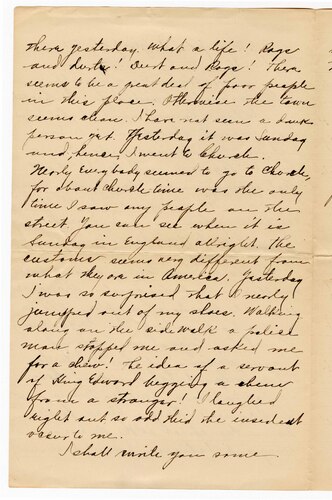 there yesterday. What a life! Rags
and dirt! Dirt and Rags! There
seems to be a great deal of poor people
in this place. Otherwise the town
seems clean. I have not seen a
person yet. Yesterday it was Sunday
and, hence, I went to Church.
Nearly everybody seemed to go to Church,
for about church time was the only
time I saw any people on the
street. You can see when it is
Sunday in England allright. The
customs seems very different from
what they are in America. Yesterday
I was so surprised that I nearly
jumped out of my shoes. Walking
along on the sidewalk a police
man stopped me and asked me
for a chew! The idea of a servant
of King Edward begging a chew
from a stranger! I laughed
right out so odd did the incident
occur to me.
I shall write you some